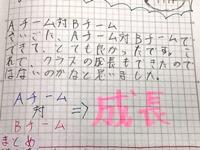 Aチーム対Bチーム
さいごに、Aチーム対Bチームで
できて、とても良かったです。
れで、クラスの成長もできたので
はないのかなと思いました。
Aチーム
対
⇒成長
Bチーム
まとめ